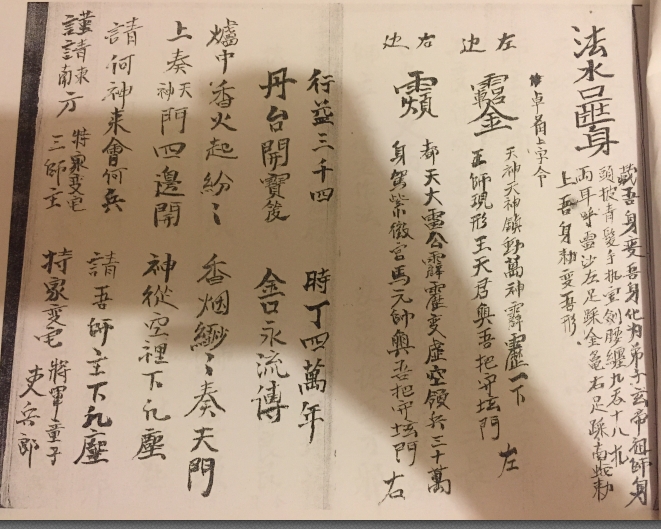 法水口藏身
藏吾身變吾身化为弟子玄帝祖師身
頭披青髮手执宝劍腰纏九吞十八扎
兩耳呼灵沙左足踩金亀右足踩南蛇勅
上吾身勅變吾形
卓前上字令
左边
天神天神鎮動萬神霹靂一下
五師現形王天君與吾把守坛門 左
右边
都天大雷公霹靂变虚空領兵三十萬
身駕紫微宮馬元帥與吾把守坛門 右
行益三千四 時丁四萬年
丹台開寶後 金口永流傳
爐中香火起紛〻 香烟鄉〻奏天門
上奏天神門四邊開 神從空裡下凡塵
請何神来會何兵 請吾師主下凡塵
謹請東南方 特家变宅三師主
特家变宅 將軍童子吏兵郎